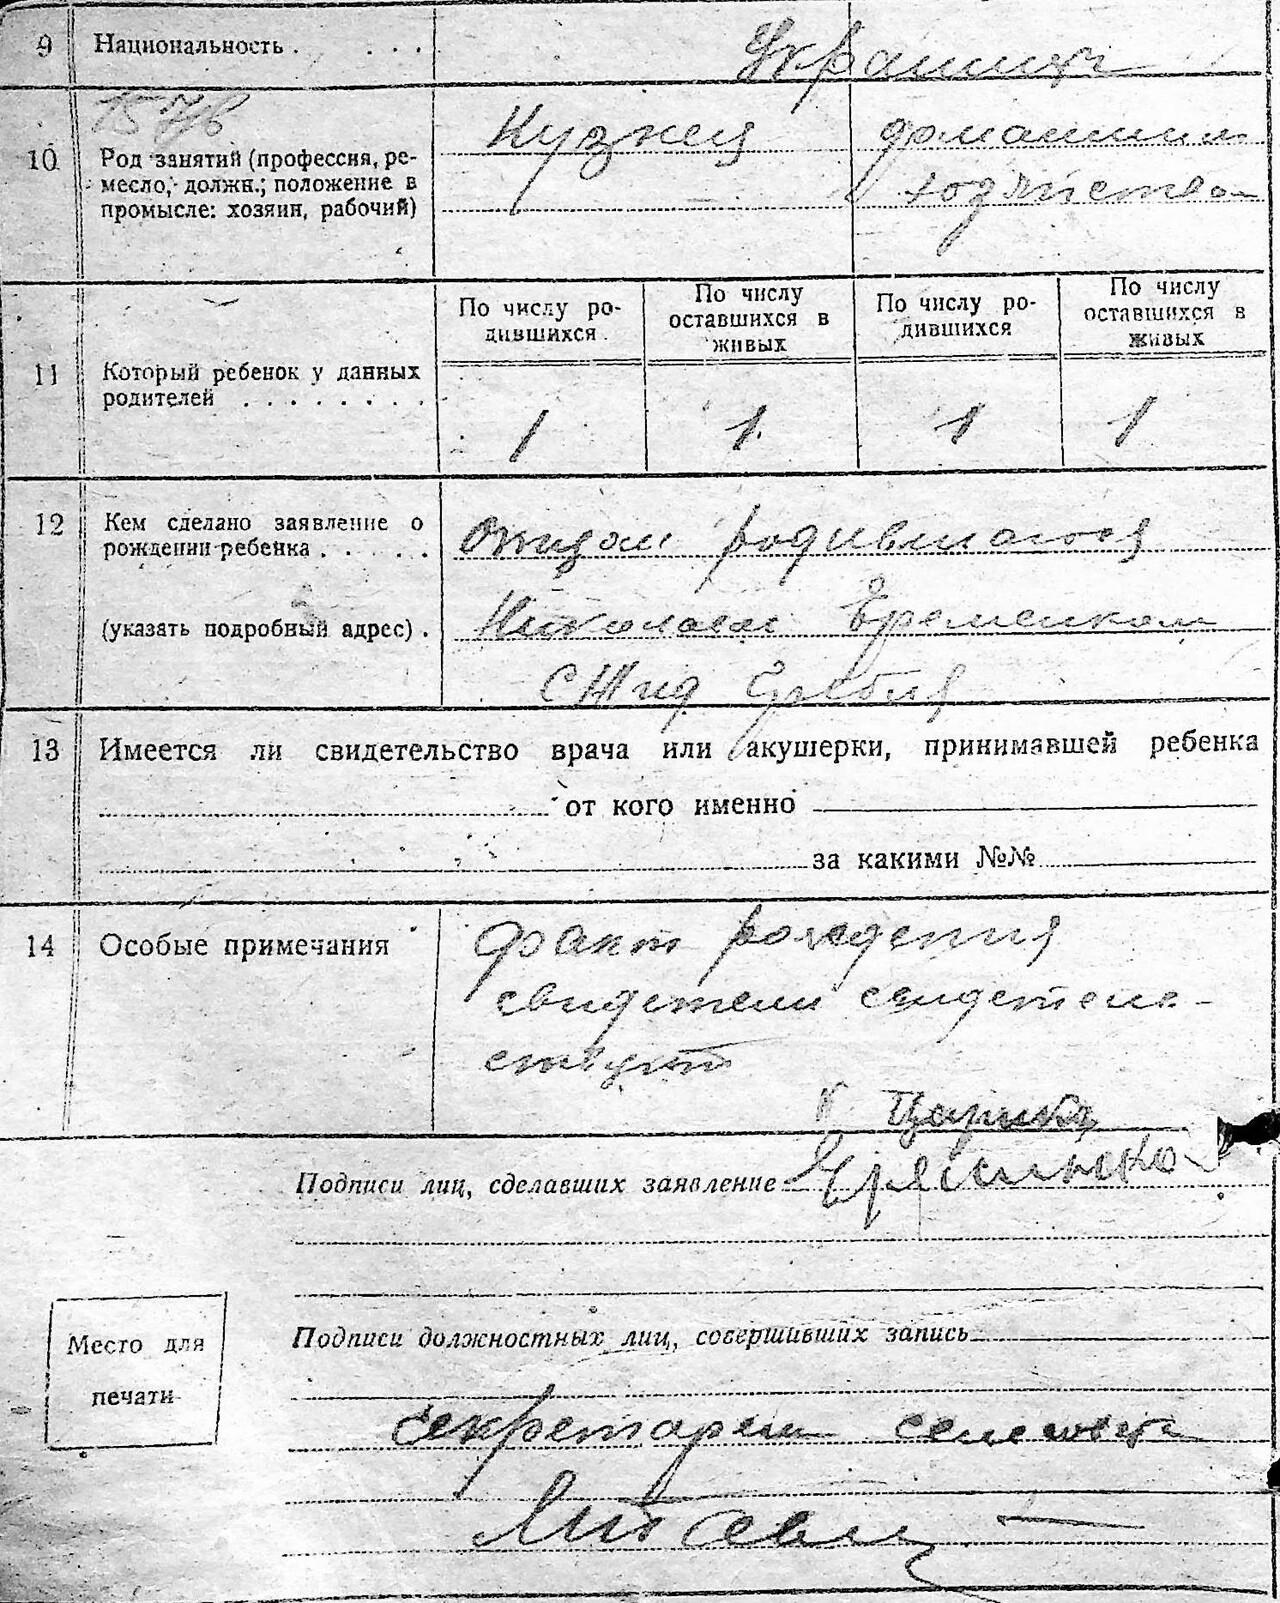 9 Национальность . . . . Украинцы
10 Род занятий (профессия, ре-
месло, должн.; положение в
промысле: хозяин, рабочий)
Кузнец домашним
хозяйством
11 Который ребенок у данных
родителей . . . . . . . .
По числу ро-
дившихся
По числу
оставшихся в
живых
По числу ро-
дившихся
По числу
оставшихся в
живых
1 1 1 1
12 Кем сделано заявление о
рождении ребенка . . . . .
(указать подробный адрес) .
Отцом родившагося
Николаем Еременком
13 Имеется ли свидетельство врача или акушерки, принимавшей ребенка
от кого именно
за какими №№
14 Особые примечания
Факт рождения
свидетели свидетель-
ствуют
Подписи лиц, сделавших заявление
Подписи должностных лиц, совершивших запись
Место для
печати
секретарь сельсовета